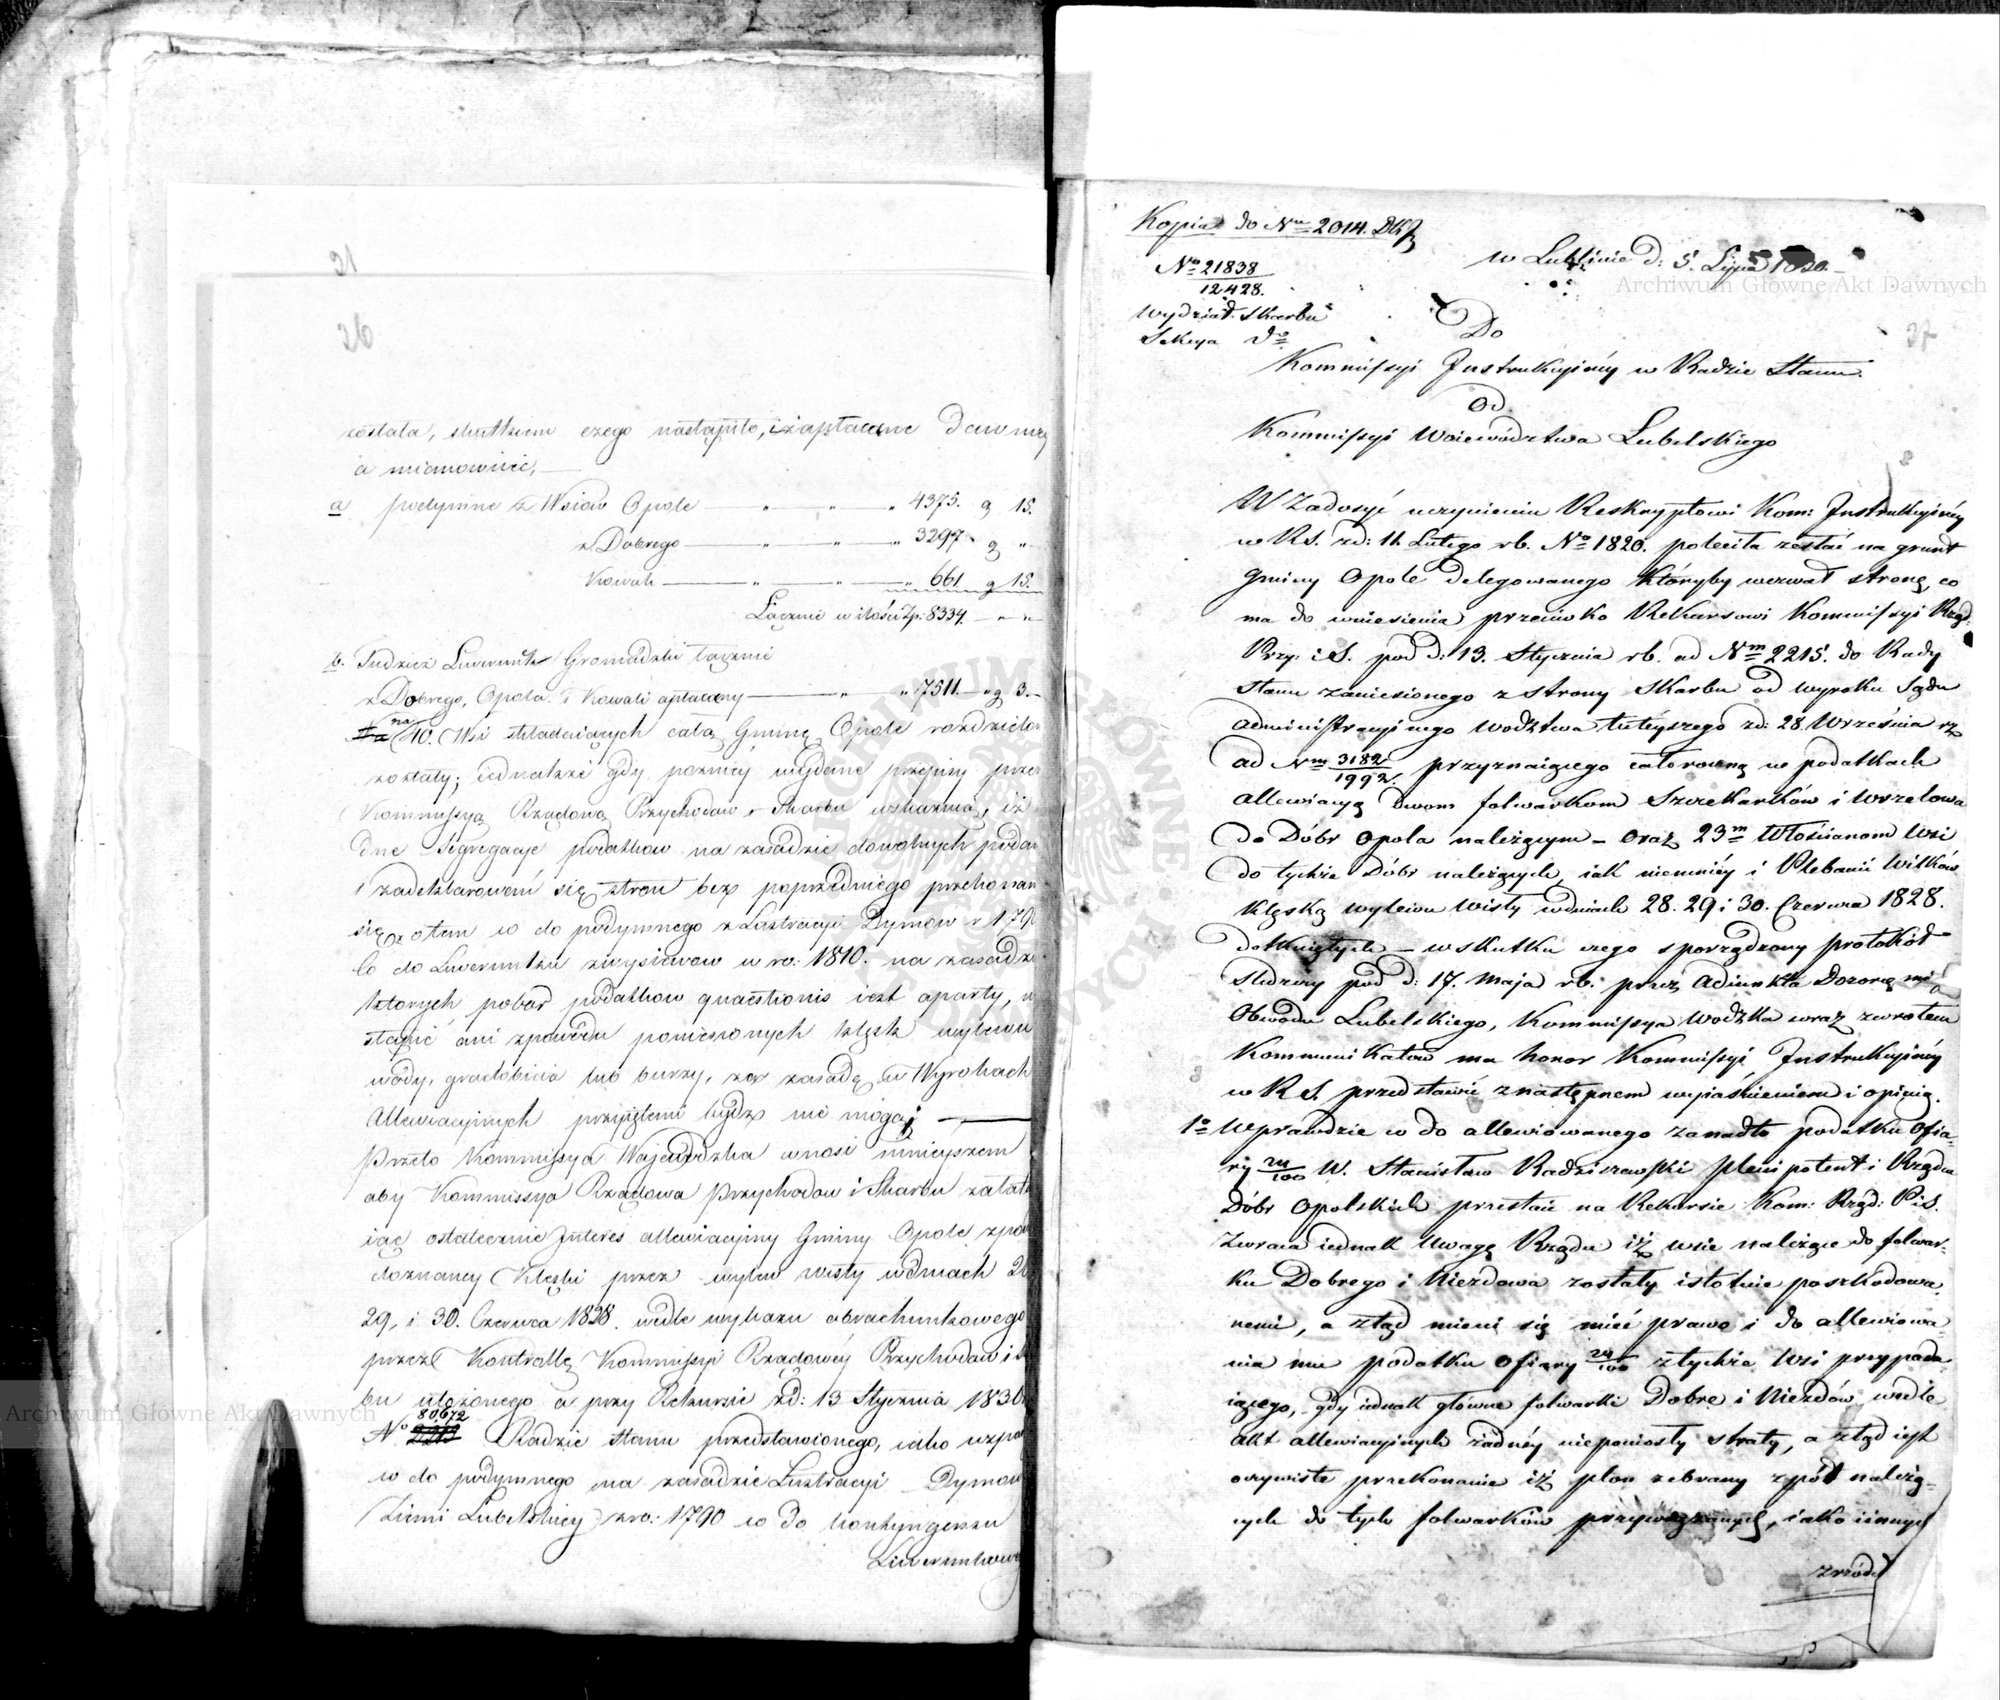 21
26
została, skutkiem czego nastąpiło, iż zapłacone Daniny
a mianowicie,
a podymne z Wsiów Opole — „ „ „ 4375. g 15.
z Dobrego — „ „ „ 3297. g „
Kowali — „ — „ — „ 661. g 15.
Łącznie w ilości Zp. 8334. — „ — „
b. Tudzież Liwerunk Gromadzki łącznie
z Dobrego, Opola i Kowali opłacany — „ „ 7511. — „ g 3. —
na 10. Wsi składaiących całą Gminę Opole rozdzielon
zostały; iednakże gdy poźniéy wydane przepisy przez
Kommissyą Rządową Przychodow i Skarbu wskazuią, iż
dne Segregacye podatkow na zasadzie dowolnych podań
i zadeklarowań się stron bez poprzedniego przekonan
się o tem co do podymnego z Lustracyi Dymow r 179
co do Liwerunku zwysiewow w ro: 1810. na zasadzie
ktorych pobor podatkow quaestionis iest oparty, n
stąpić ani zpowodu poniesionych klęsk wylewu
wody, gradobicia lub burzy, za zasadę w Wyrokach
Allewiacyinych przyiętemi bydź nie mogą; —
Przeto Kommissya Wojewodzka wnosi ninieyszem
aby Kommissya Rządowa Przychodow i Skarbu załatw
iąc ostatecznie Interes allewiacyiny Gminy Opole zpow
doznaney Klęski przez wylew Wisły wdniach 28
29, i 30. Czerwca 1828. wedle wykazu obrachunkowego
przez Kontrollę Kommissyi Rządowéy Przychodow i Skar
bu ułożonego a przy Rekursie zd: 13 Stycznia 1830
80672
No 2213 Radzie Stanu przedstawionego, iako wspar
co do podymnego na zasadzie Lustracyi Dymow
Ziemi Lubelskiey zro: 1790 co do kontyngensu
Liwerunkowe
Kopia do Nru 2014. DKP
w Lublinie d: 5. Lipca 1830. —
No 21838
12428.
37
Wydział Skarbu
Sekcya do
Do
Kommissyi Instrukcyinéy w Radzie Stanu.
Od
Kommissyi Woiewództwa Lubelskiego
W Zadosyć uczynieniu Reskryptowi Kom: Instrukcyinéy
w RS. zd: 11. Lutego rb. No 1820. poleciła zesłać na grunt
Gminy Opole delegowanego któryby wezwał stronę, co
ma do wniesienia przeciwko Rekursowi Kommissyi Rząd:
Przy: i S. pod d: 13. Stycznia rb. ad Nrm 2215. do Rady
Stanu zaniesionego z strony Skarbu od wyroku Sądu
Administracyinego Wodztwa tuteyszego zd: 28. Września rz
ad Nrm 3182/1992. przyznaiącego całoroczną w podatkach
allewiacyą dwom folwarkom Szczekarków i Wrzelowa
do Dóbr Opola należącym — oraz 23m Włościanom Wsi
do tychże Dóbr należących, iak niemniéy i Plebanii Wilków
klęską wylewu Wisły wdniach 28. 29 i 30. Czerwca 1828.
dotkniętych — wskutku czego sporządzony protokół
śledczy pod d: 17. Maja rb. przez Adiunkta Dozorcę mia
Obwodu Lubelskiego, Kommissya Wodzka wraz zwrotem
Kommunikatow ma honor Kommissyi Instrukcyinéy
w RS. przedstawić z następnem wyiaśnieniem i opinią.
1o Wprawdzie co do allewiowanego zanadto podatku Ofia-
ry 24/100 W. Stanisław Radziszewski plenipotent i Rządca
Dóbr Opolskich przestaie na Rekursie Kom: Rząd: P.iS.
Zwraca iednak Uwagę Rządu iż wsie należące do folwar-
ku Dobrego i Niezdowa zostały istotnie poszkodowa-
nemi, a ztąd mieni się mieć prawo i do allewiowa-
nia mu podatku Ofiary 24/100 z tychże Wsi przypada-
iącego, gdy iednak główne folwarki Dobre i Niezdów wedle
akt allewiacyinych żadnéy nieponiosły straty, a ztąd iest
oczywiste przekonanie iż plon zebrany z pól należą-
cych do tych folwarków przywiązanych, iako i innych
zrzódeł
Archiwum Główne Akt Dawnych
Archiwum Główne Akt Dawnych
ARCHIWUM GŁÓWNE AKT DAWNYCH